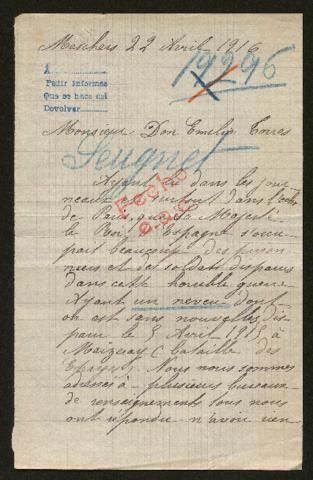 Meschers 22 Avril 1916
19296
A
Pedir informes
Que se hace aqui
Devolver
Monsieur Don Emilio Torres
Seugnet
Ayant vu dans les jour
neaux et surtout dans l'echo
de Paris, que Sa Majesté
le Roi d'Espagne s'occu
pait beaucoup des prison
niers et des soldats disparus
dans cette horrible guerre
Ayant un neveu dont
on est sans nouvelles de
puis le 5 Avril 1915 à
Maizeray (bataille des
Eparges). Nous nous sommes
adressés à plusieurs bureaux
de renseignements tous nous
ont répondu n'avoir rien
Fecho